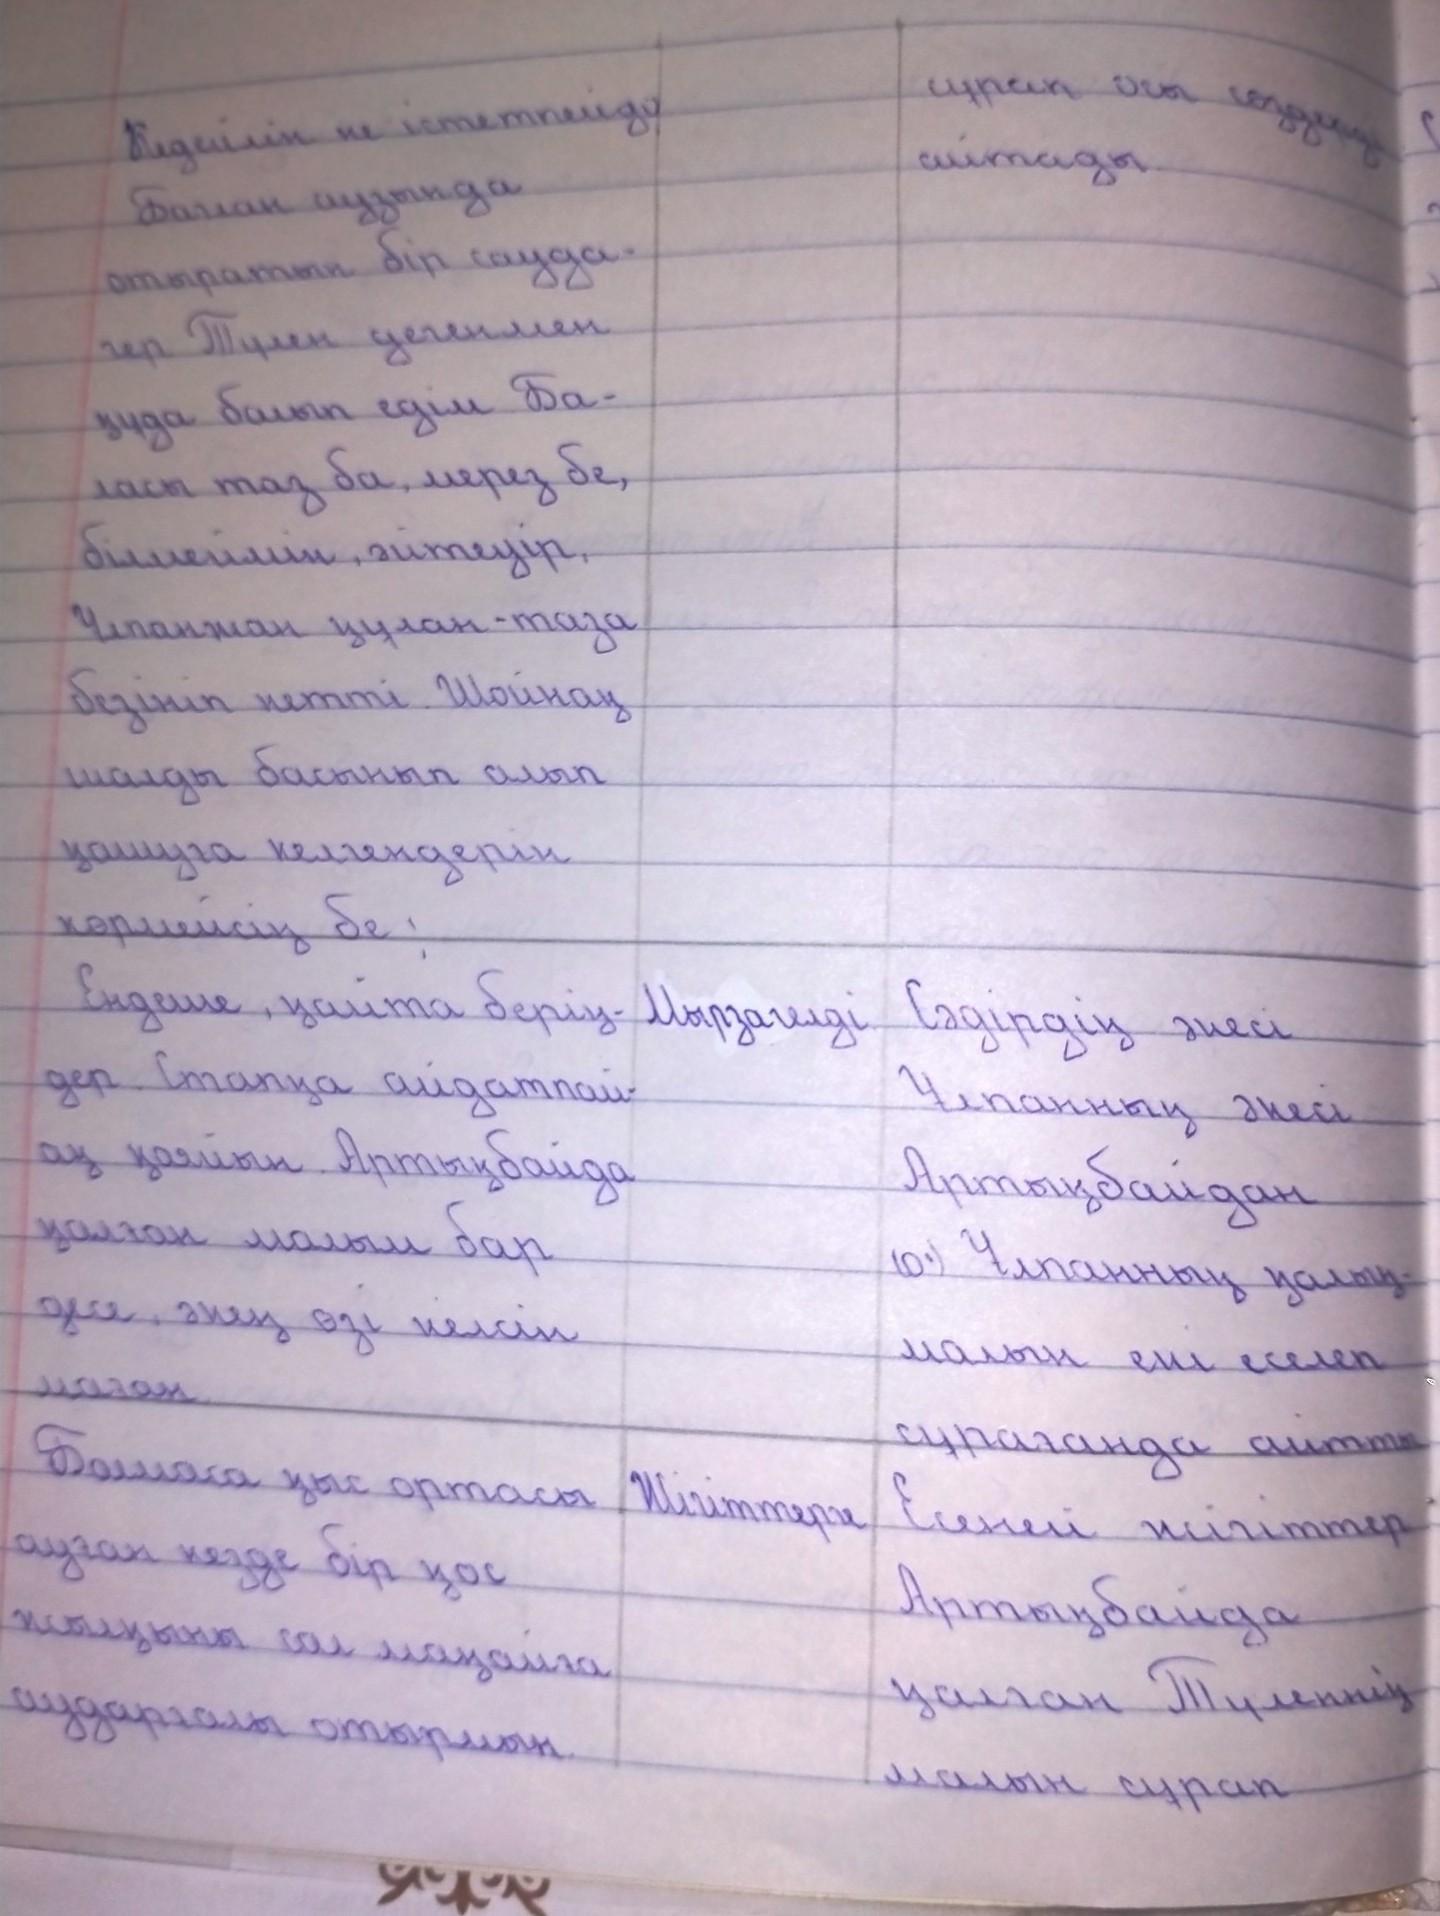 Кедейлік не істетпейді
Баглан аузында
отыратын бір сауда-
гер Түлен дегенмен
құда болып едім Ба-
ласы таз ба, мерез бе,
білмеймін, әйтеуір,
Ұлпанжан құлан-таза
безініп кетті. Шойнақ
шалды басынып алып
қашуға келгендерін
көрмейсің бе!
сұрап осы сөздерді
айтады
Ендеше, қайта берің-
дер. Стапқа айдатпай-
ақ қояйын. Артықбайда
қалған малым бар
десе, әкең өзі келсін
маған.
Мырзагелді
Сәдірдің әкесі
Ұлпанның әкесі
Артықбайдан
Ұлпанның қалың-
малын екі еселеп
сұрағанда айтты
Болмаса қыс ортасы
ауған кезде бір қос
жылқыны сол маңайға
аударғалы отырмын.
Жігіттерге
Есеней жігіттер
Артықбайда
қалған Түлепнің
малын сұрап